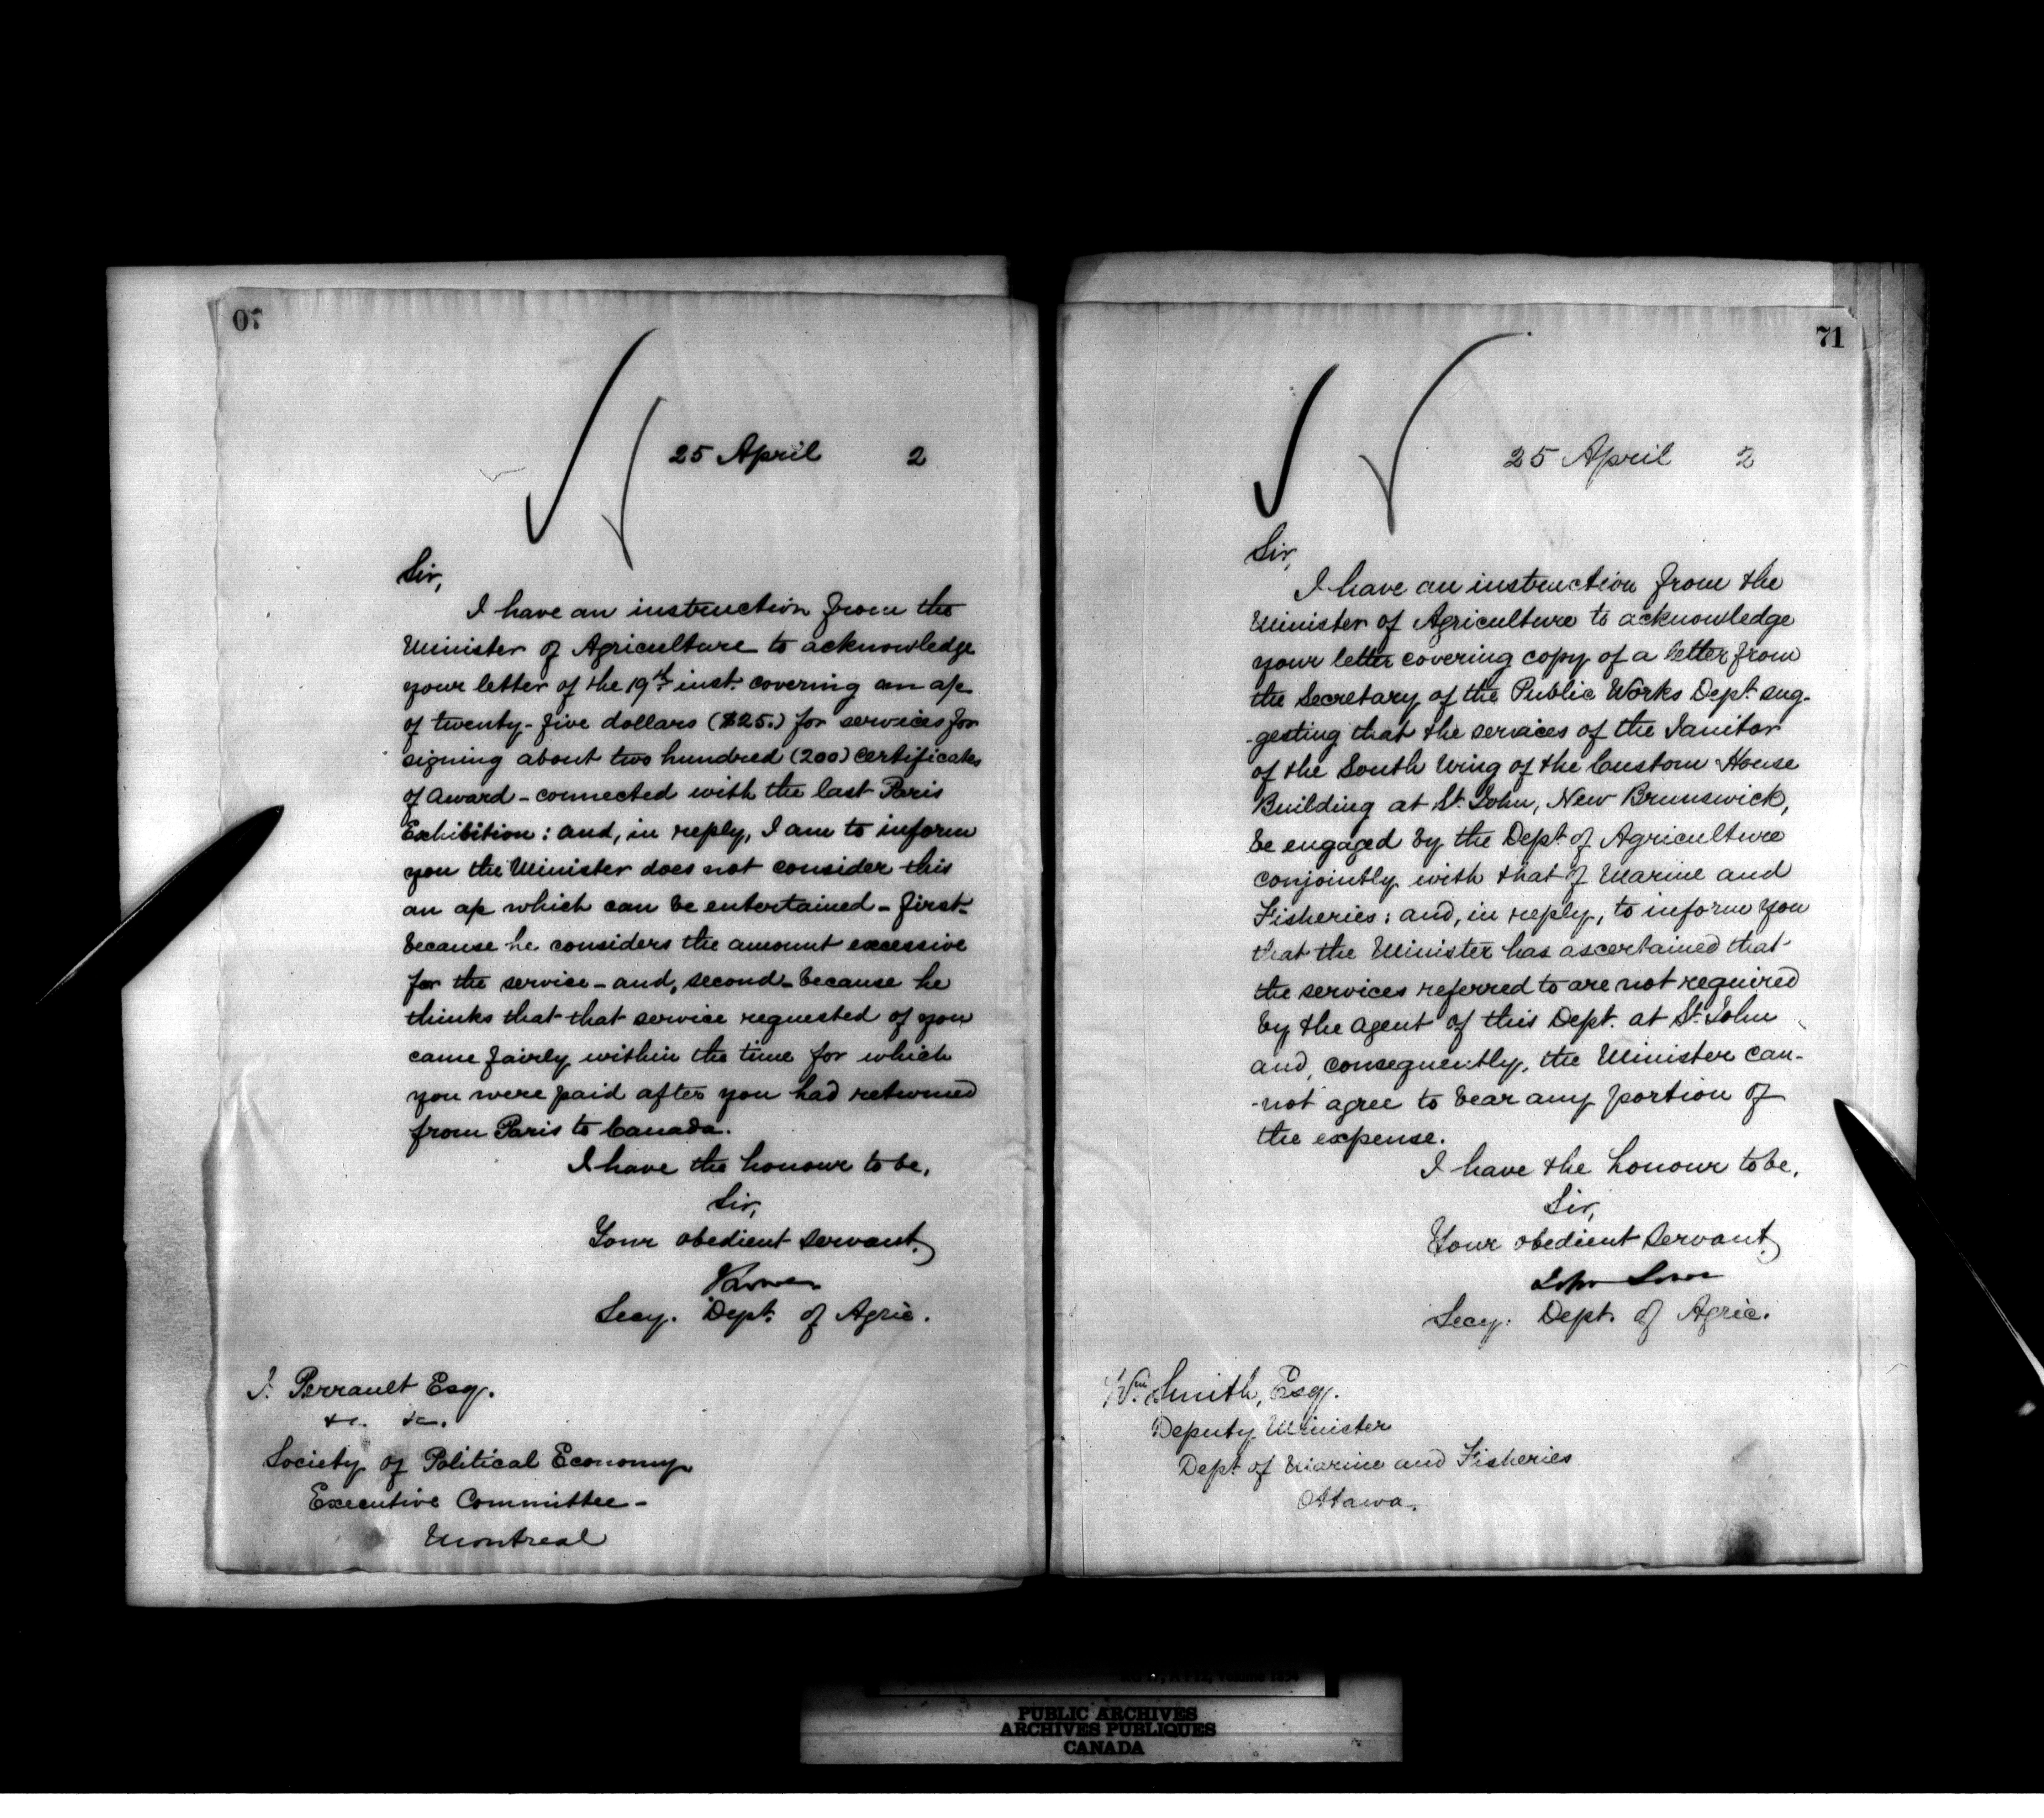 70
25 April 2
Sir,
I have an instruction from the
Minister of Agriculture to acknowledge
your letter of the 19th inst. covering an a/c
of twenty-five dollars ($25.) for services for
signing about two hundred (200) certificates
of award - connected with the last Paris
Exhibition: and, in reply, I am to inform
you the Minister does not consider this
an a/c which can be entertained - first-
because he considers the amount excessive
for the service - and, second - because he
thinks that that service requested of you
came fairly within the time for which
you were paid after you had returned
from Paris to Canada.
I have the honour to be,
Sir,
Your obedient servant,
Secy. Dept. of Agric.
J. Perrault Esq.
&c. &c.
Society of Political Economy
Executive Committee -
Montreal
71
25 April 2
Sir,
I have an instruction from the
Minister of Agriculture to acknowledge
your letter covering copy of a letter from
the Secretary of the Public Works Dept. sug-
-gesting that the services of the Janitor
of the South Wing of the Custom House
Building at St. John, New Brunswick,
be engaged by the Dept. of Agriculture
conjointly with that of Marine and
Fisheries: and, in reply, to inform you
that the Minister has ascertained that
the services referred to are not required
by the agent of this Dept. at St. John
and, consequently, the Minister can-
-not agree to bear any portion of
the expense.
I have the honour to be,
Sir,
Your obedient servant,
John Lowe
Secy. Dept. of Agric.
Wm. Smith, Esq.
Deputy Minister
Dept. of Marine and Fisheries
Ottawa.
PUBLIC ARCHIVES
ARCHIVES PUBLIQUES
CANADA